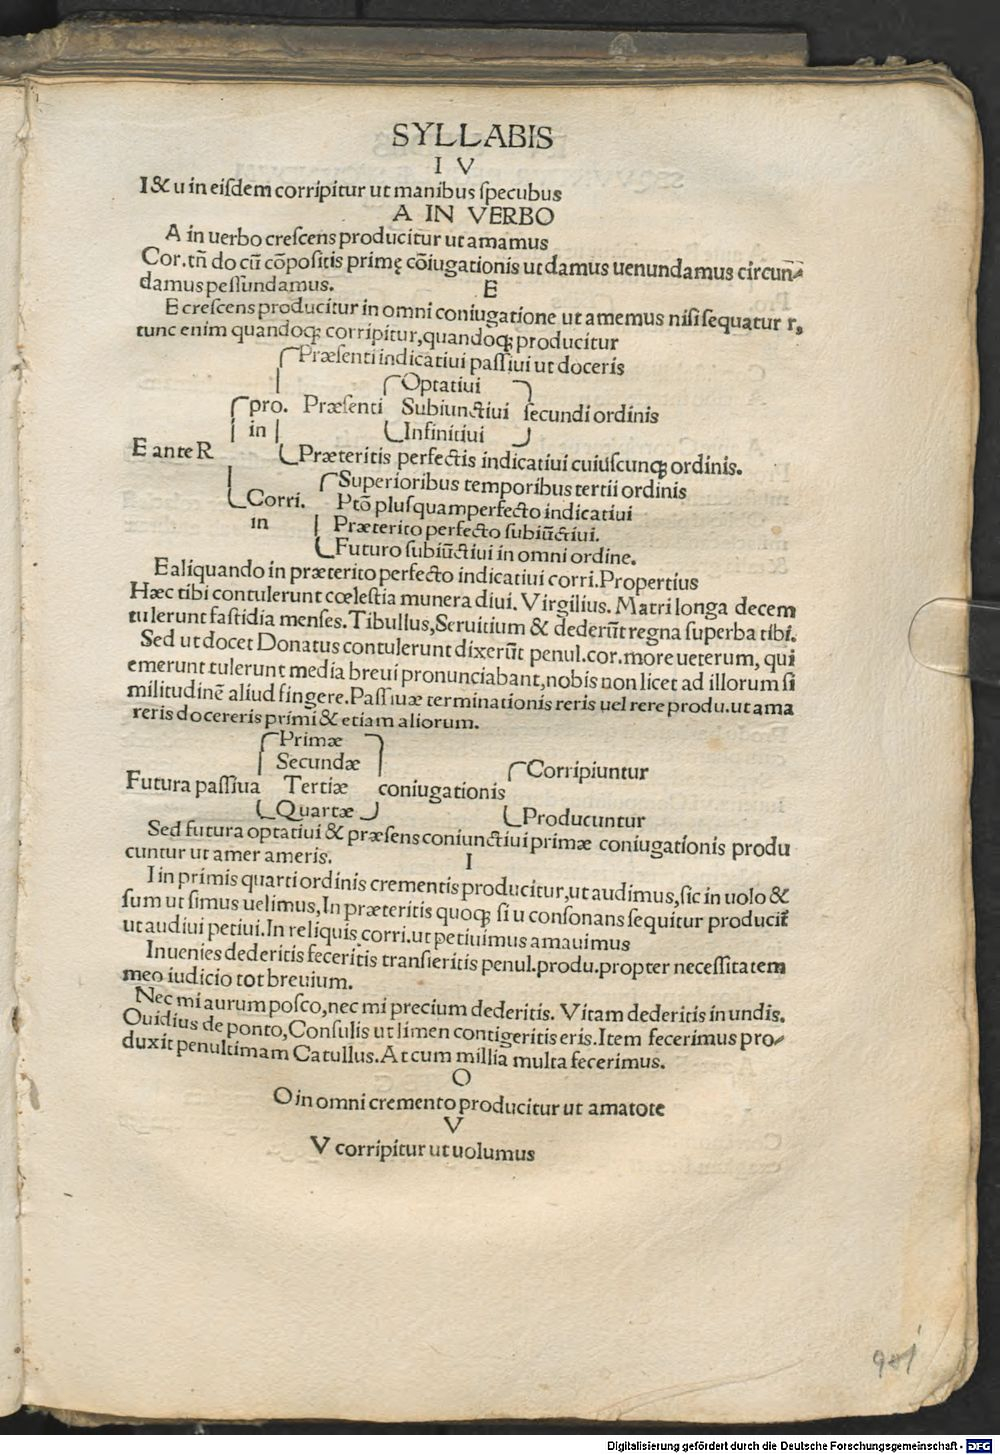 SYLLABIS
I V
I & u in eiſdem corripitur ut manibus ſpecubus
A IN VERBO
A in uerbo creſcens producitur ut amamus
Cor. tñ do cũ cõpoſitis primę cõiugationis ut damus uenundamus circun⸗
damus peſſundamus.
E
E creſcens producitur in omni coniugatione ut amemus niſi ſequatur r,
tunc enim quandoq; corripitur, quandoq; producitur
Præſenti indicatiui paſſiui ut doceris
Optatiui
pro. Præſenti Subiunctiui ſecundi ordinis
in Infinitiui
E ante R
Præteritis perfectis indicatiui cuiuſcunq; ordinis.
Superioribus temporibus tertii ordinis
Corri. Ptõ pluſquamperfecto indicatiui
in Præterito perfecto ſubiũctiui.
Futuro ſubiũctiui in omni ordine.
E aliquando in præterito perfecto indicatiui corri. Propertius
Hæc tibi contulerunt cœleſtia munera diui. Virgilius. Matri longa decem
tulerunt faſtidia menſes. Tibullus, Seruitium & dederũt regna ſuperba tibi.
Sed ut docet Donatus contulerunt dixerũt penul. cor. more ueterum, qui
emerunt tulerunt media breui pronunciabant, nobis non licet ad illorum ſi
militudinẽ aliud fingere. Paſſiuæ terminationis reris uel rere produ. ut ama
reris docereris primi & etiam aliorum.
Primæ
Secundæ
Corripiuntur
Futura paſſiua Tertiæ coniugationis
Quartæ
Producuntur
Sed futura optatiui & præſens coniunctiui primæ coniugationis produ
cuntur ut amer ameris.
I
I in primis quarti ordinis crementis producitur, ut audimus, ſic in uolo &
ſum ut ſimus uelimus, In præteritis quoq; ſi u conſonans ſequitur producit̃
ut audiui petiui. In reliquis corri. ut petiuimus amauimus
Inuenies dederitis feceritis tranſieritis penul. produ. propter neceſſitatem
meo iudicio tot breuium.
Nec mi aurum poſco, nec mi precium dederitis. Vitam dederitis in undis.
Ouidius de ponto, Conſulis ut limen contigeritis eris. Item fecerimus pro⸗
duxit penultimam Catullus. At cum millia multa fecerimus.
O
O in omni cremento producitur ut amatote
V
V corripitur ut uolumus
Digitalisierung gefördert durch die Deutsche Forschungsgemeinschaft - DFG